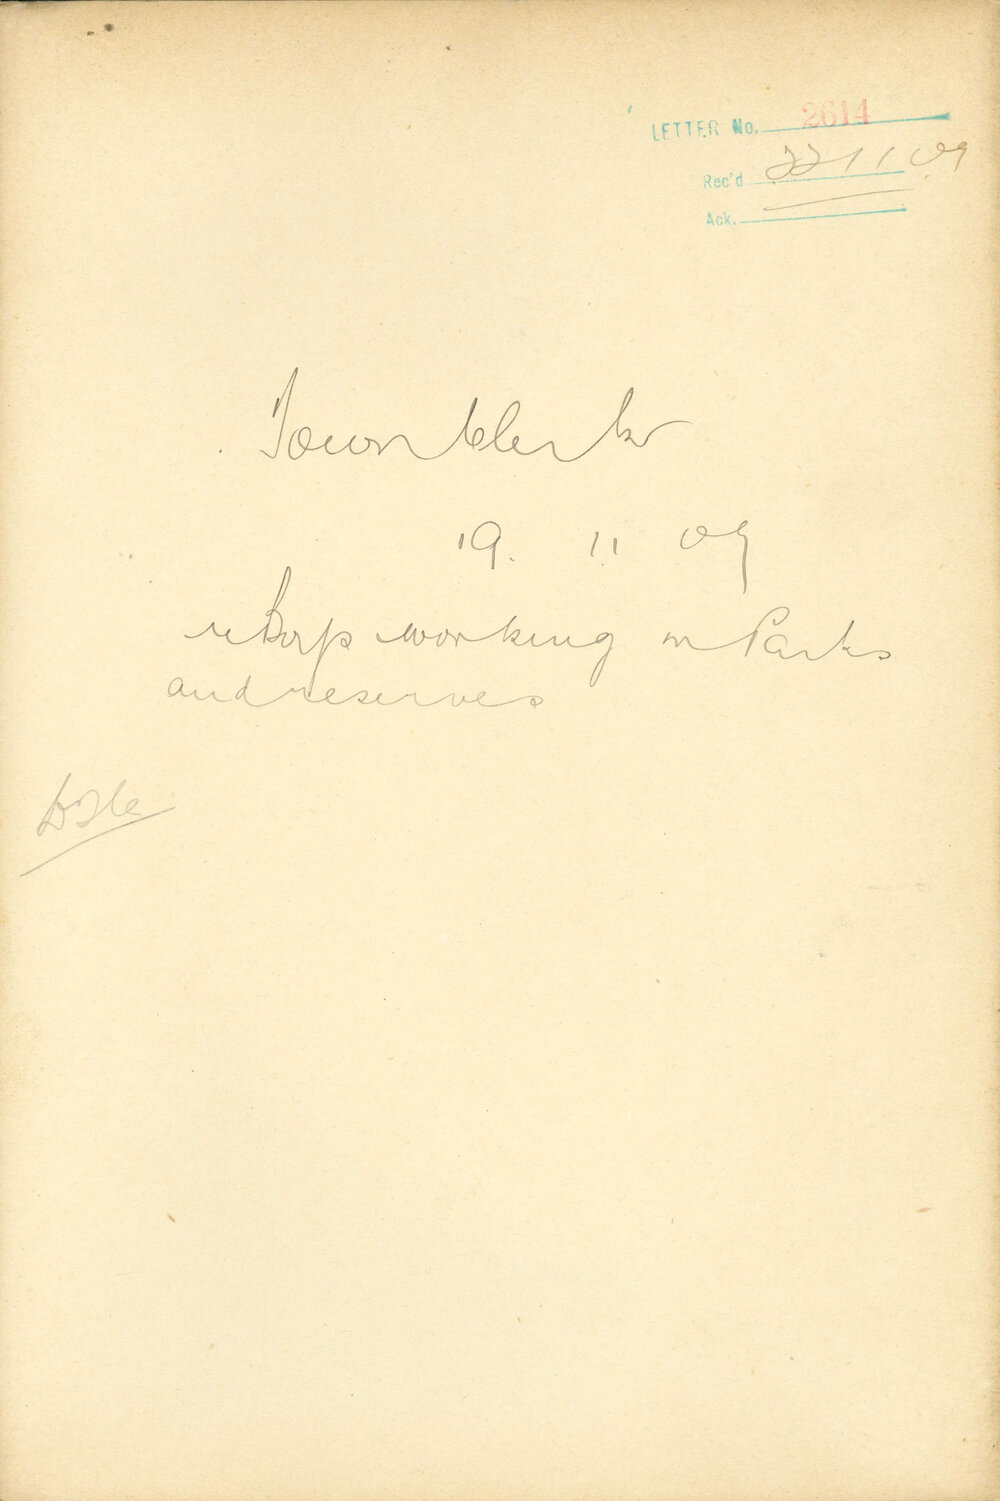 LETTER No. 2614
Rec'd 22 11 09
Ack.
Town Clerk
19. 11 09
re Corp working on Parks
and reserves
File